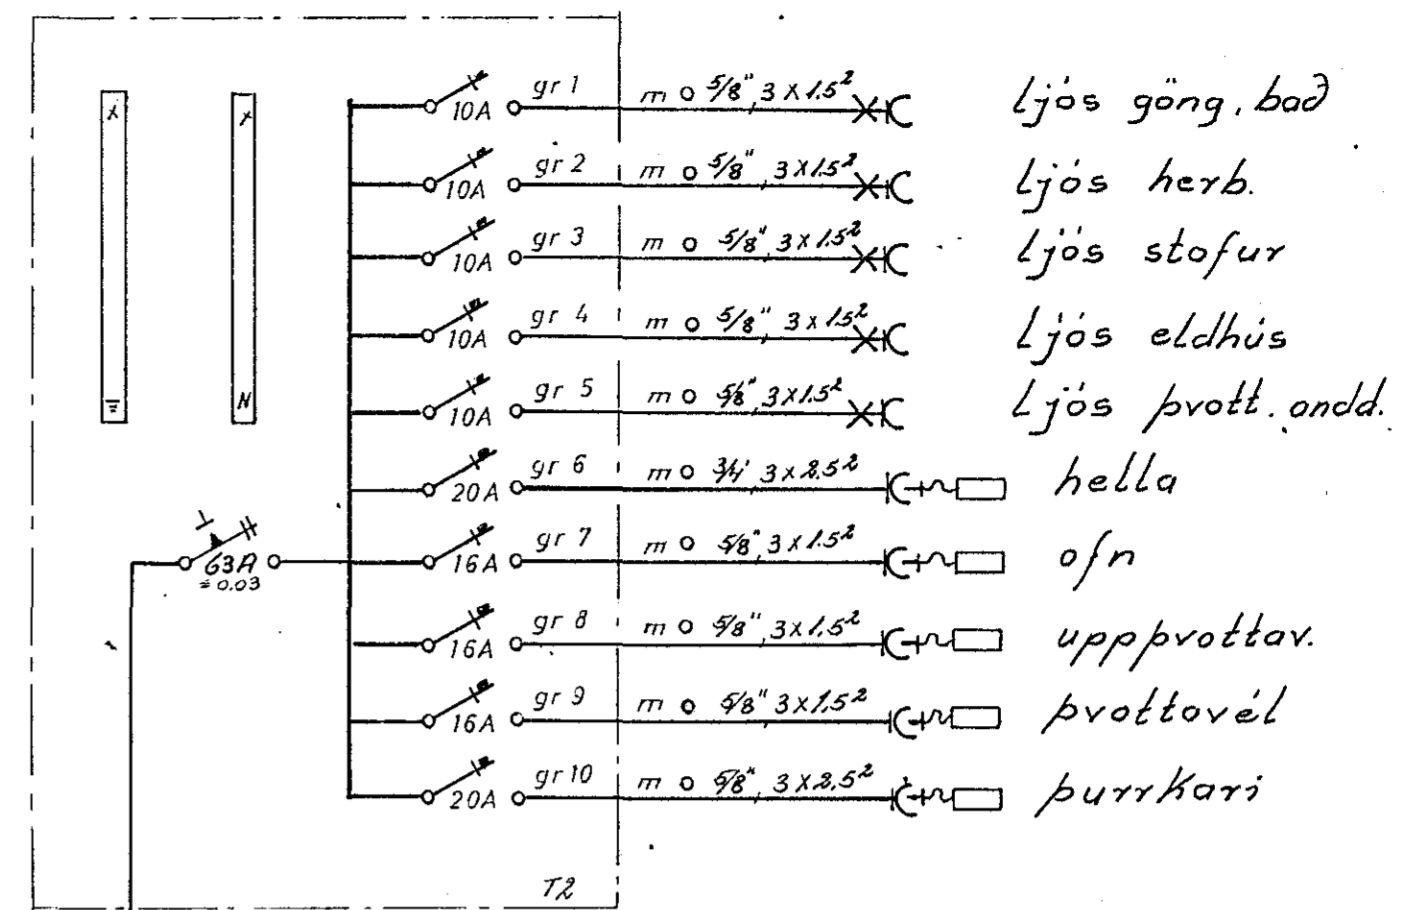 gr 1 m o 5/8", 3 x 1.5² Ljós göng, bað
10A
gr 2 m o 5/8", 3 x 1.5² Ljós herb.
10A
gr 3 m o 5/8", 3 x 1.5² Ljós stofur
10A
gr 4 m o 5/8", 3 x 1.5² Ljós eldhús
10A
gr 5 m o 5/8", 3 x 1.5² Ljós þvott. andd.
10A
N
gr 6 m o 3/4", 3 x 2.5² hella
20A
gr 7 m o 5/8", 3 x 1.5² ofn
63A 16A
0.03
gr 8 m o 5/8", 3 x 1.5² uppþvottav.
16A
gr 9 m o 5/8", 3 x 1.5² þvottavél
16A
gr 10 m o 5/8", 3 x 2.5² þurrkari
20A
T2